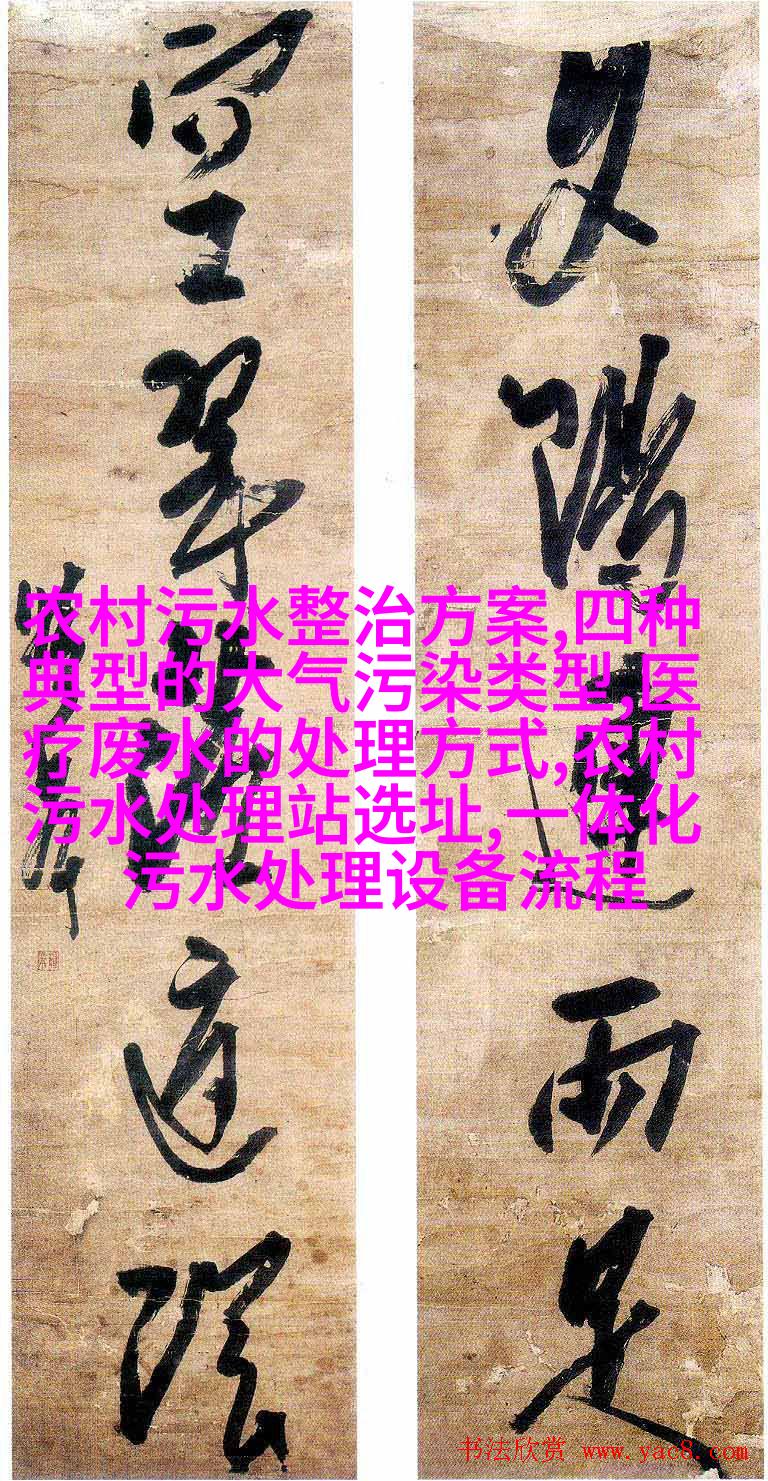 夕陽連雨足
空翠落庭陰
农村污水整治方案,四种
典型的大气污染类型,医
疗废水的处理方式,农村
污水处理站选址,一体化
污水处理设备流程
书法欣赏 www.yac8.com